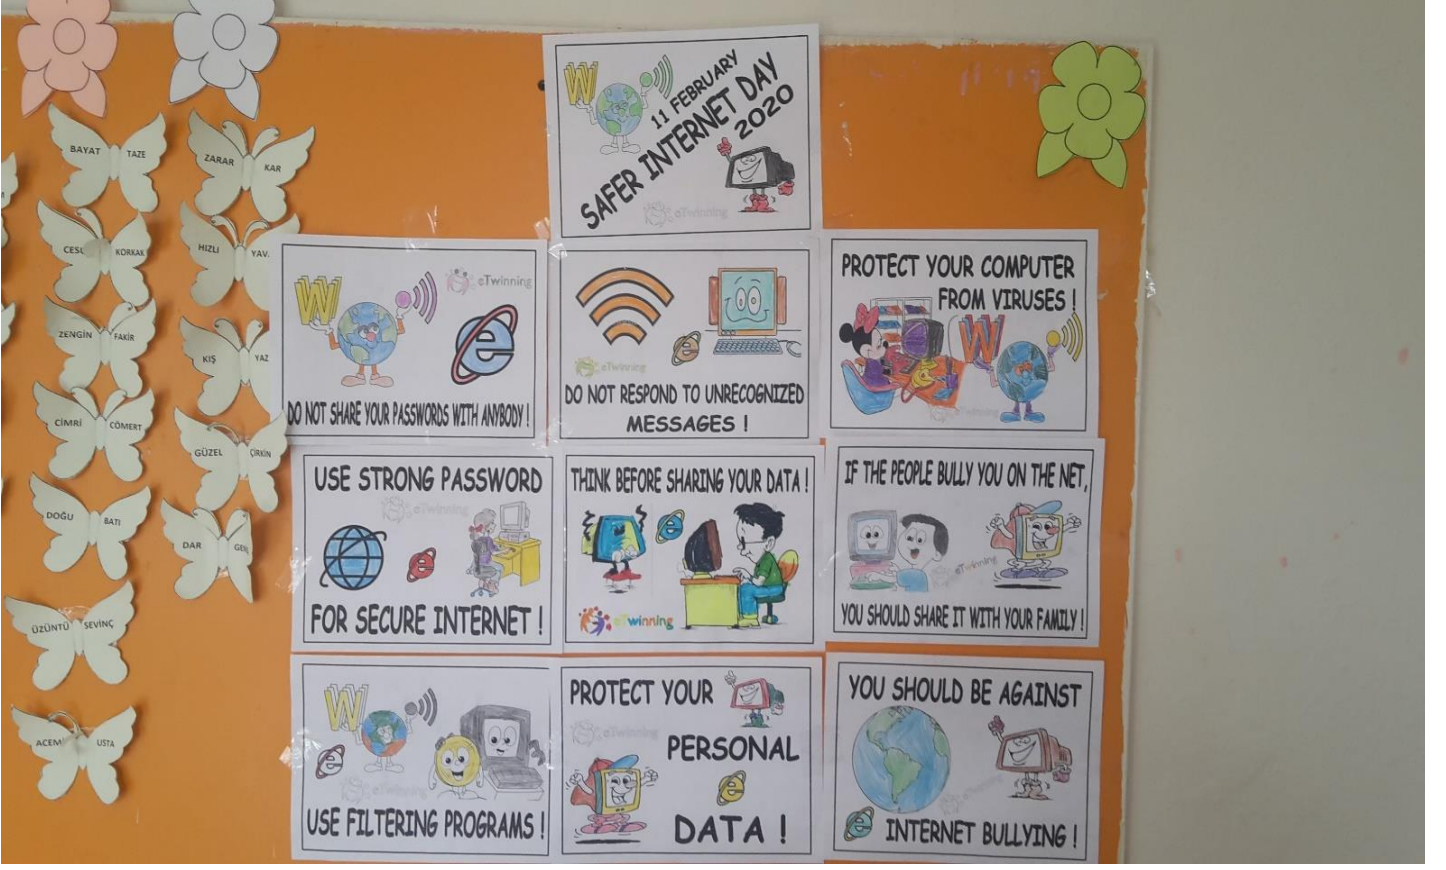 BAYAT TAZE
ZARAR KAR
CESU KORKAK
HIZLI YAV
ZENGİN FAKİR
KIŞ YAZ
CİMRİ CÖMERT
GÜZEL ÇİRKİN
DOĞU BATI
DAR GENİŞ
ÜZÜNTÜ SEVİNÇ
ACEM USTA
W
11 FEBRUARY
SAFER INTERNET DAY
2020
eTwinning
W
eTwinning
e
DO NOT SHARE YOUR PASSWORDS WITH ANYBODY !
e
eTwinning
DO NOT RESPOND TO UNRECOGNIZED
MESSAGES !
PROTECT YOUR COMPUTER
FROM VIRUSES !
W
eTwinning
USE STRONG PASSWORD
eTwinning
e
FOR SECURE INTERNET !
THINK BEFORE SHARING YOUR DATA !
e
eTwinning
IF THE PEOPLE BULLY YOU ON THE NET,
eTwinning
YOU SHOULD SHARE IT WITH YOUR FAMILY !
W
e
eTwinning
USE FILTERING PROGRAMS !
PROTECT YOUR
eTwinning
PERSONAL
e
DATA !
YOU SHOULD BE AGAINST
eTwinning
e
INTERNET BULLYING !